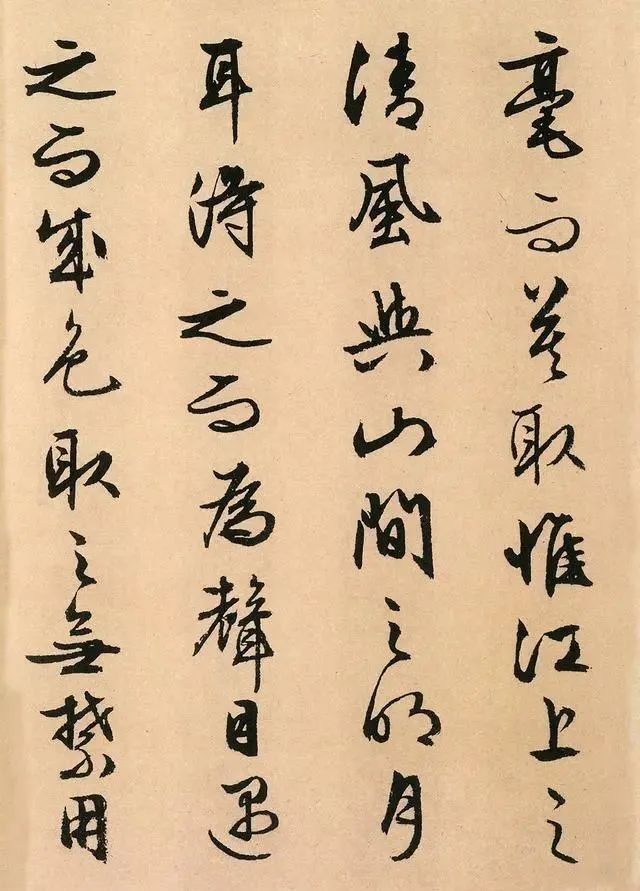 毫而莫取惟江上之
清風與山間之明月
耳得之而為聲目遇
之而成色取之無禁用